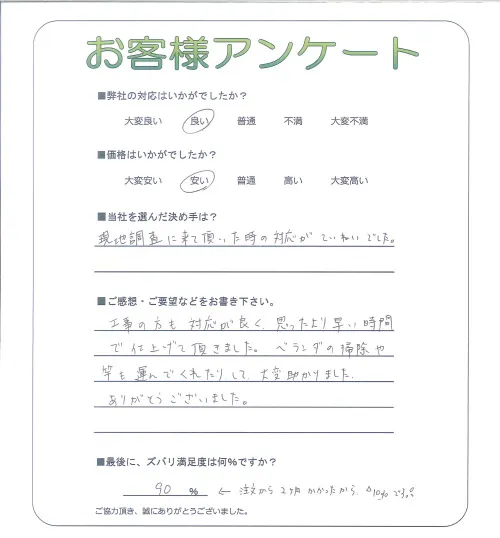 お客様アンケート
■弊社の対応はいかがでしたか？
大変良い 良い 普通 不満 大変不満
■価格はいかがでしたか？
大変安い 安い 普通 高い 大変高い
■当社を選んだ決め手は？
現地調査に来て頂いた時の対応がていねいでした。
■ご感想・ご要望などをお書き下さい。
工事の方も対応が良く、思ったより早い時間
で仕上げて頂きました。ベランダの掃除や
竿も運んでくれたりして、大変助かりました。
ありがとうございました。
■最後に、ズバリ満足度は何％ですか？
90 % ← 注文から2ヶ月かかったから、△10%です。
ご協力頂き、誠にありがとうございました。